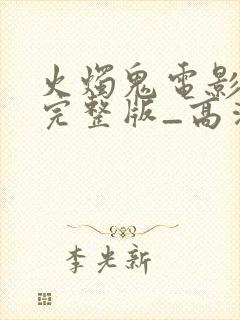 火燭鬼電影
完整版_高
李光新